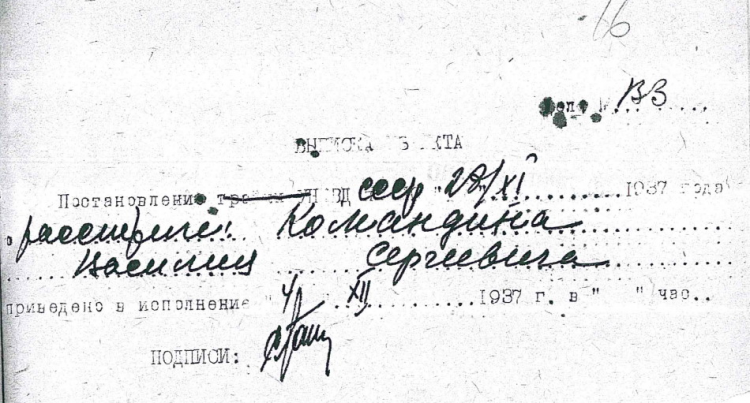 16
Дело № 133
ВЫПИСКА ИЗ АКТА
Постановление тройки УНКВД СССР "28/XI 1937 года
о расстреле: Командина
Василия Сергеевича
приведено в исполнение "4/ XII 1937 г. в " " час..
ПОДПИСИ: